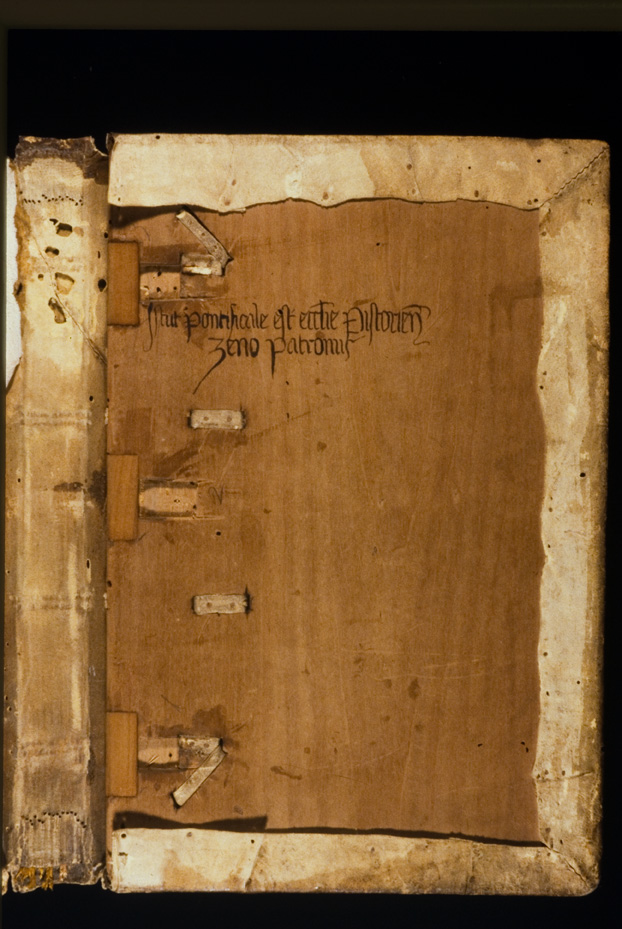 Istut pontificale est ecclie Pistorieñ
Zeno patronus